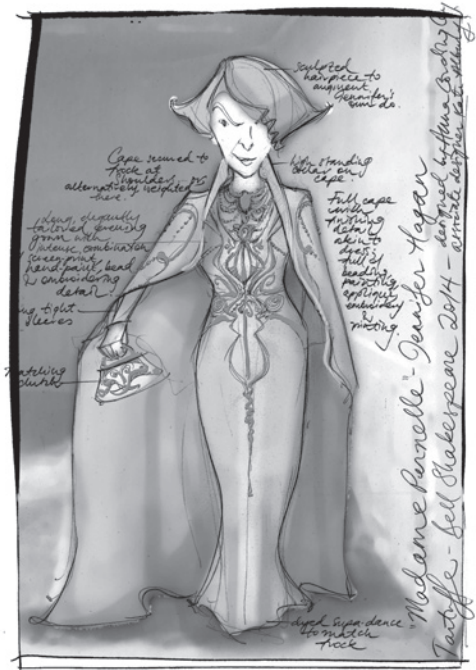 sculpted
hairpiece to
augment
Jennifer's
own do.
Cape secured to
frock at
shoulders, or
alternatively weighted
here.
high standing
collar on
cape.
long, elegantly
tailored evening
gown with
intense combination
screenprint,
hand paint, bead
& embroidering
detail.
long tight
sleeves
Full cape
with
finishing
detail
akin to
dress:
full of
beading
painting
applique
embroidery
&
printing.
matching
clutch
dyed supa-dance
to match
frock
"Madame Pernelle" - Jennifer Hagan
Tartuffe - Bell Shakespeare 2014 - designed by Anna Cordingley
associate designer